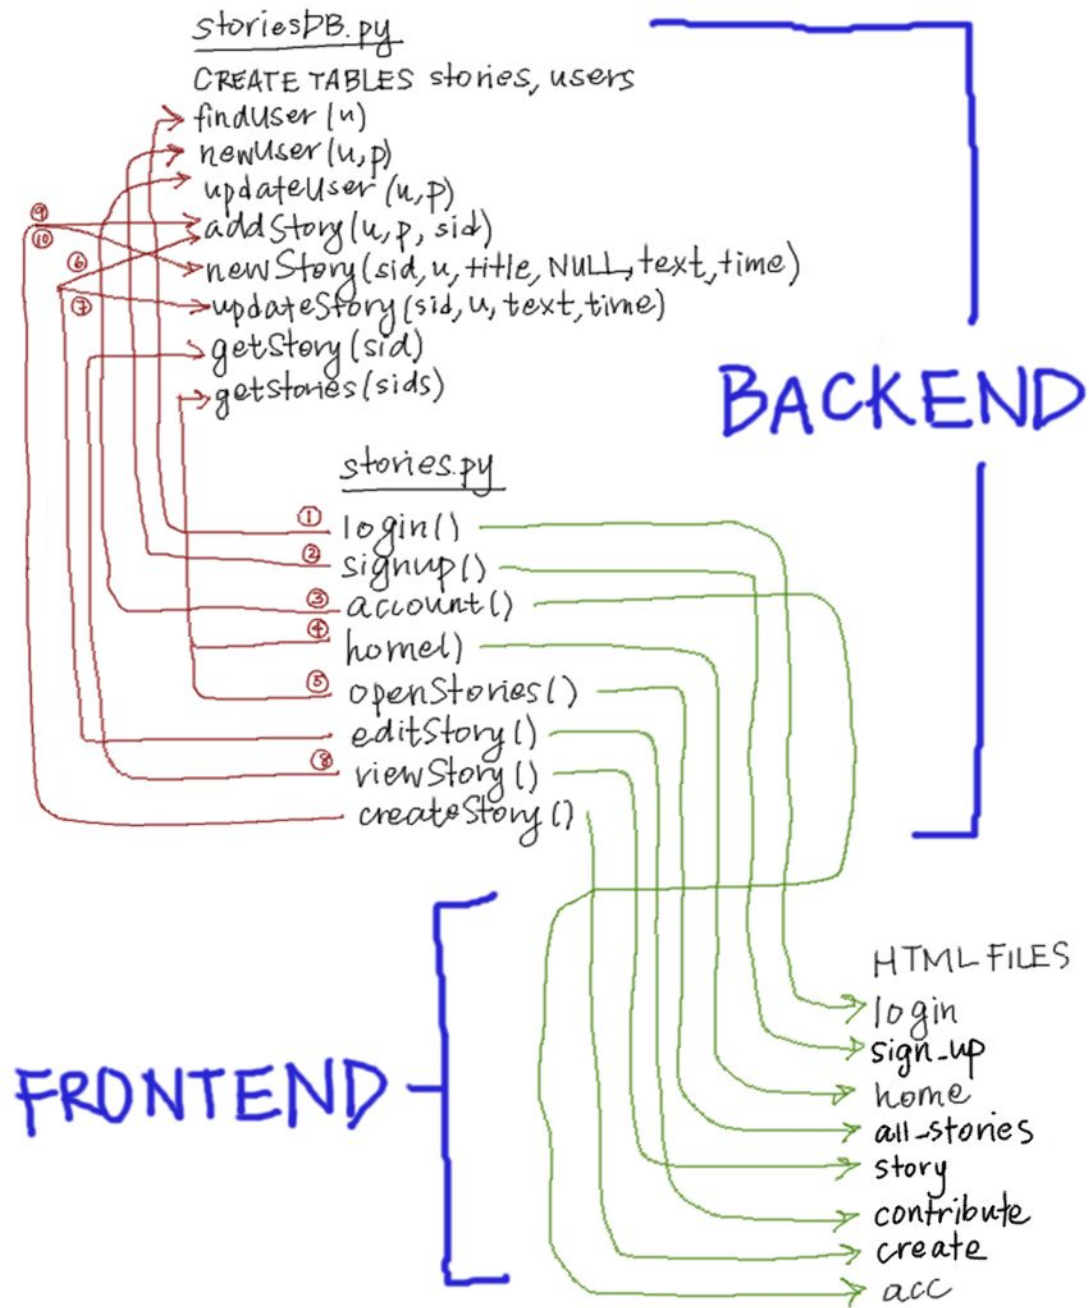 storiesDB.py
CREATE TABLES stories, users
findUser(u)
newUser(u,p)
updateUser(u,p)
⑨
addStory(u, p, sid)
⑩
⑥
newStory(sid, u, title, NULL, text, time)
⑦
updateStory(sid, u, text, time)
getStory(sid)
getStories(sids)
BACKEND
stories.py
① login()
② signup()
③ account()
④ home()
⑤ openStories()
editStory()
⑧ viewStory()
createStory()
FRONTEND
HTML FILES
login
sign_up
home
all_stories
story
contribute
create
acc